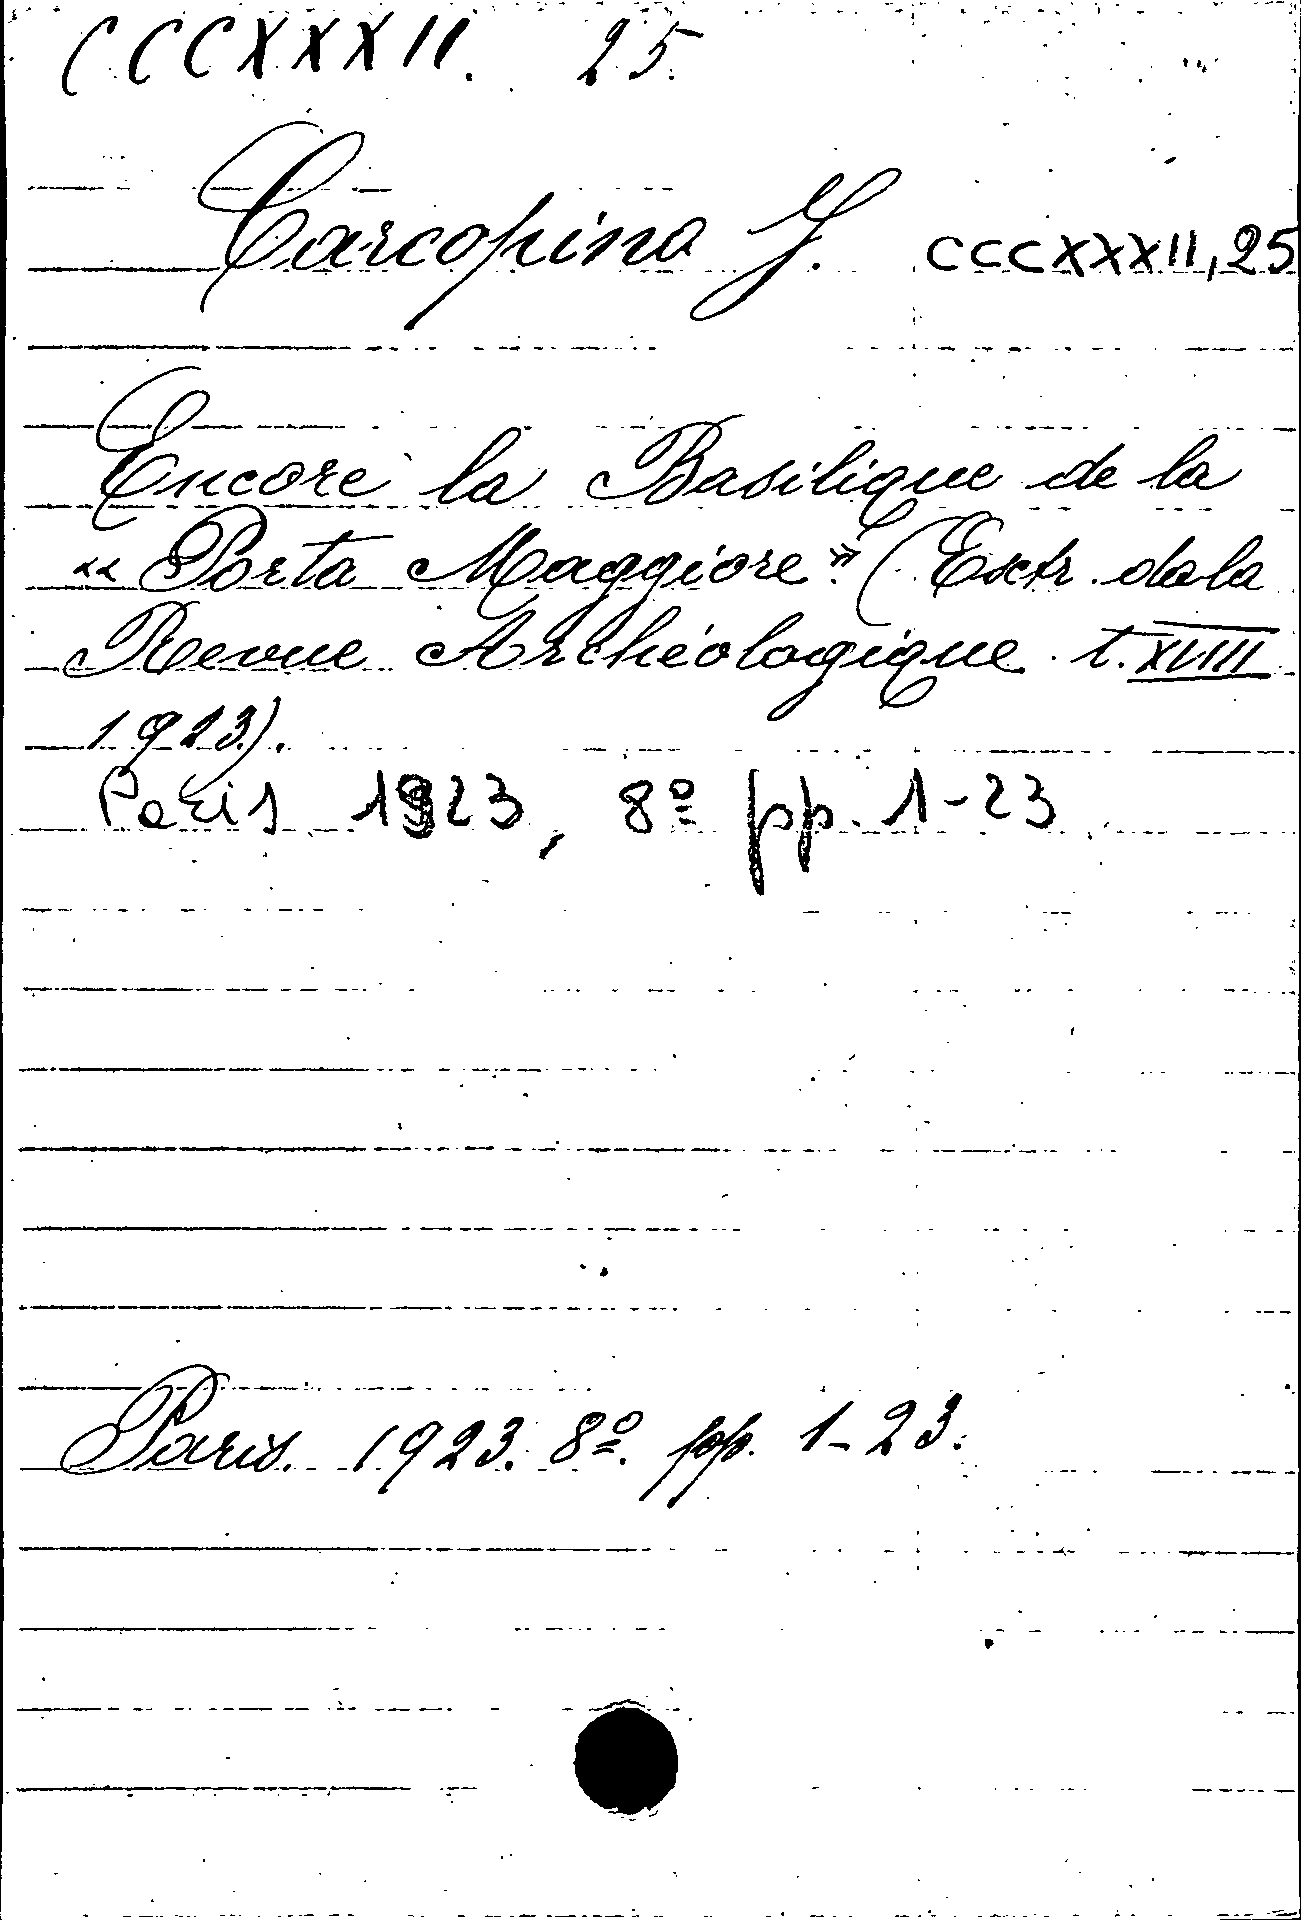 CCCXXXII. 25.
Carcopino J. CCCXXXII, 25
Encore la Basilique de la
« Porta Maggiore » (Extr. de la
Revue Archéologique t. XVIII
1923).
Paris 1923, 8º pp. 1-23
Paris. 1923. 8º. pp. 1-23.